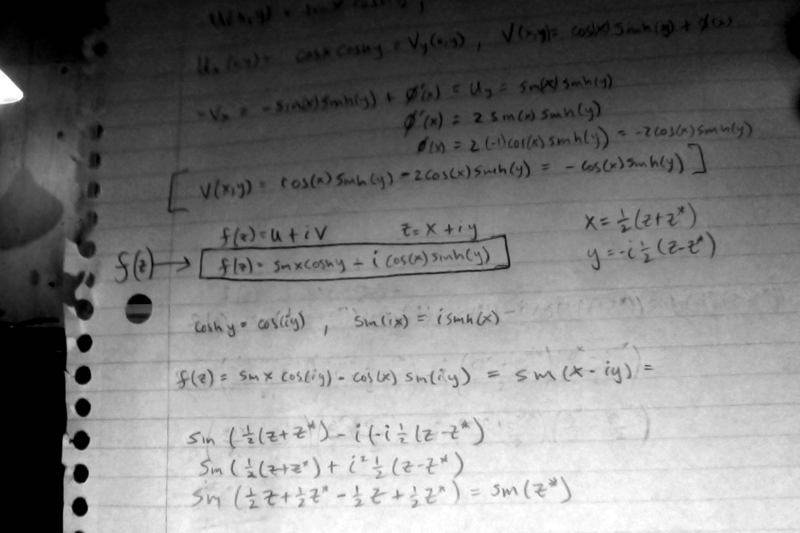 U_x(x,y) = cosx coshy = V_y(x,y) , V(x,y) = cos(x) sinh(y) + ø(x)
-V_x = - sin(x) sinh(y) + ø'(x) = U_y = sin(x) sinh(y)
ø'(x) = 2 sin(x) sinh(y)
ø(x) = 2 (-1) cos(x) sinh(y) = -2cos(x) sinh(y)
[ V(x,y) = cos(x) sinh(y) - 2cos(x) sinh(y) = - cos(x) sinh(y) ]
f(z) = u + iv z = x + iy x = ½(z+z*)
f(z) → f(z) = sinxcoshy - i cos(x) sinh(y) y = -i ½ (z-z*)
coshy = cos(iy) , sin(ix) = i sinh(x)
f(z) = sinx cos(iy) - cos(x) sin(iy) = sin(x - iy) =
sin (½(z+z*) - i(-i ½ (z-z*)
sin (½(z+z*) + i² ½ (z-z*)
sin (½z + ½z* - ½z + ½z*) = sin(z*)